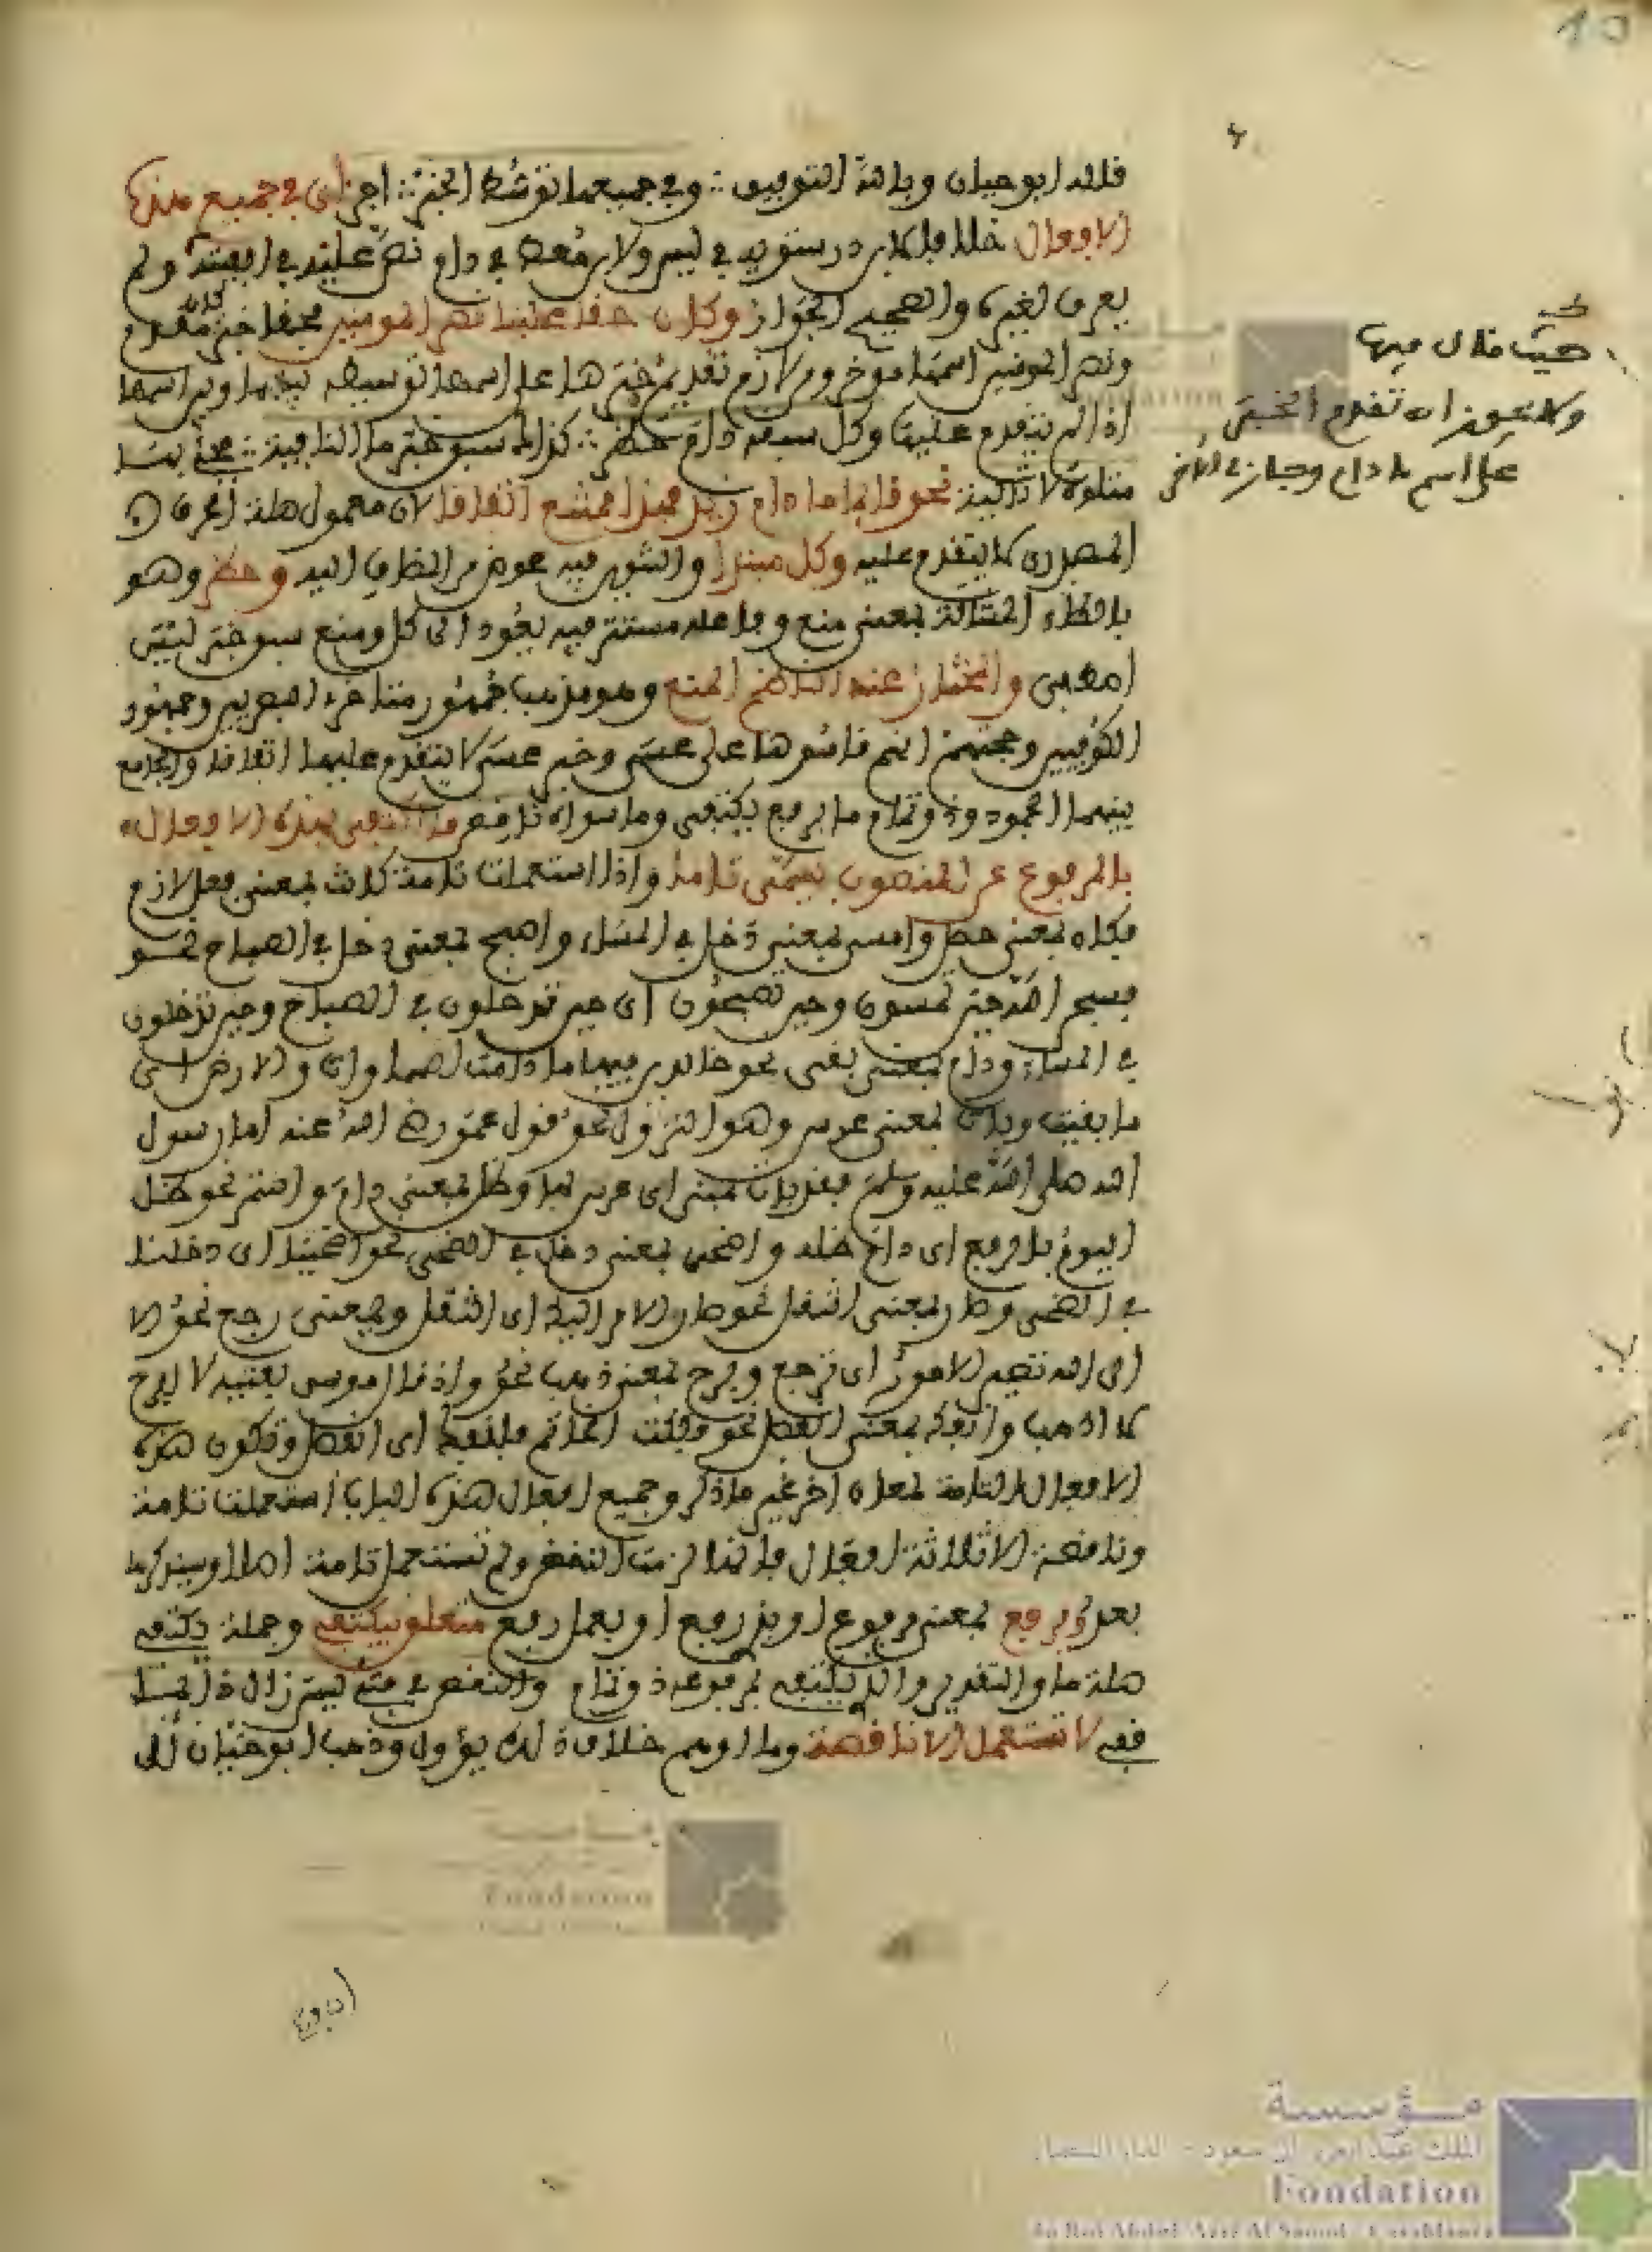 قاله ابو حيان وبالله التوفيق ∴ وفي جميعها توسط الخبر ∴ اجز اي في جميع هذه
الافعال خلافا لابن درستويه في ليس ولابن معط في دام نص عليه في الفيته ولم
يعرف لغيره والصحيح الجواز وكان حقا علينا نصر المومنين فحقا خبر كان مقدم
ونصر المومنين اسمها موخر ولازم تقديم خبرها على اسمها توسيطه بينها وبين اسمها
اذا لم يتقدم عليها وكل سبقه دام حظر ∴ كذاك سبق خبر ما النافية ∴ فجئ بها
متلوة لا تالية نحو قايما ما دام زيد فهذا ممتنع اتفاقا لان معمول صلة الحرف
المصدري لا يتقدم عليه وكل مبتدا والتنوين فيه عوض من المضاف اليه وحظر وهو
بالظاء المشالة بمعنى منع وفاعله مستتر فيه يعود الى كل ومنع سبق خبر ليس
اصطفي والمختار عند الناظم المنع وهو مذهب جمهور متاخري البصريين وجمهور
الكوفيين وحجتهم انهم قاسوها على عسى وخبر عسى لا يتقدم عليها اتفاقا والجامع
بينهما الجمود وذو تمام ما برفع يكتفي وما سواه ناقص فما اكتفى بهذه الافعال
بالمرفوع عن المنصوب يسمى تاما واذا استعملت تامة كانت بمعنى فعل لازم
فكان بمعنى حصل وامسى بمعنى دخل في المساء واصبح بمعنى دخل في الصباح نحو
فسبحن الله حين تمسون وحين تصبحون اي حين تدخلون في الصباح وحين تدخلون
في المساء ودام بمعنى بقي نحو خالدين فيها ما دامت السماوات والارض اي
ما بقيت وبات بمعنى عرس وهو النزول نحو قول عمر رضي الله عنه اما رسول
الله صلى الله عليه وسلم فقد بات بمنى اي عرس بها وظل بمعنى دام واستمر نحو ظل
اليوم بالرفع اي دام ظله واضحى بمعنى دخل في الضحى نحو اضحينا اي دخلنا
في الضحى وصار بمعنى انتقل نحو صار الامر اليك اي انتقل وبمعنى رجع نحو الا
الى الله تصير الامور اي ترجع وبرح بمعنى ذهب نحو واذ قال موسى لفتيه لا ابرح
لا اذهب وانفك بمعنى انفصل نحو فككت الخاتم فانفك اي انفصل وتكون هذه
الافعال التامة لمعان اخر غير ما ذكر وجميع افعال هذه الباب استعملت تامة
وناقصة الا ثلاثة افعال فانها لزمت النقص ولم تستعمل تامة اصلا وسيذكرها
بعد وبرفع بمعنى مرفوع او بذي رفع او بعمل رفع متعلق بيكتفي وجملة يكتفي
صلة ما والتقدير والذي يكتفي بمرفوعه ذو تمام والنقص في فتئ ليس زال دايما
قفي لا تستعمل الا ناقصة وما اوهم خلاف ذلك يؤول وذهب ابو حيان الى
حيث قال فيها
ولا يجوز ان تقدم الخبر
على اسم ما دام وجاز في الاخر
مؤسسة
Fondation